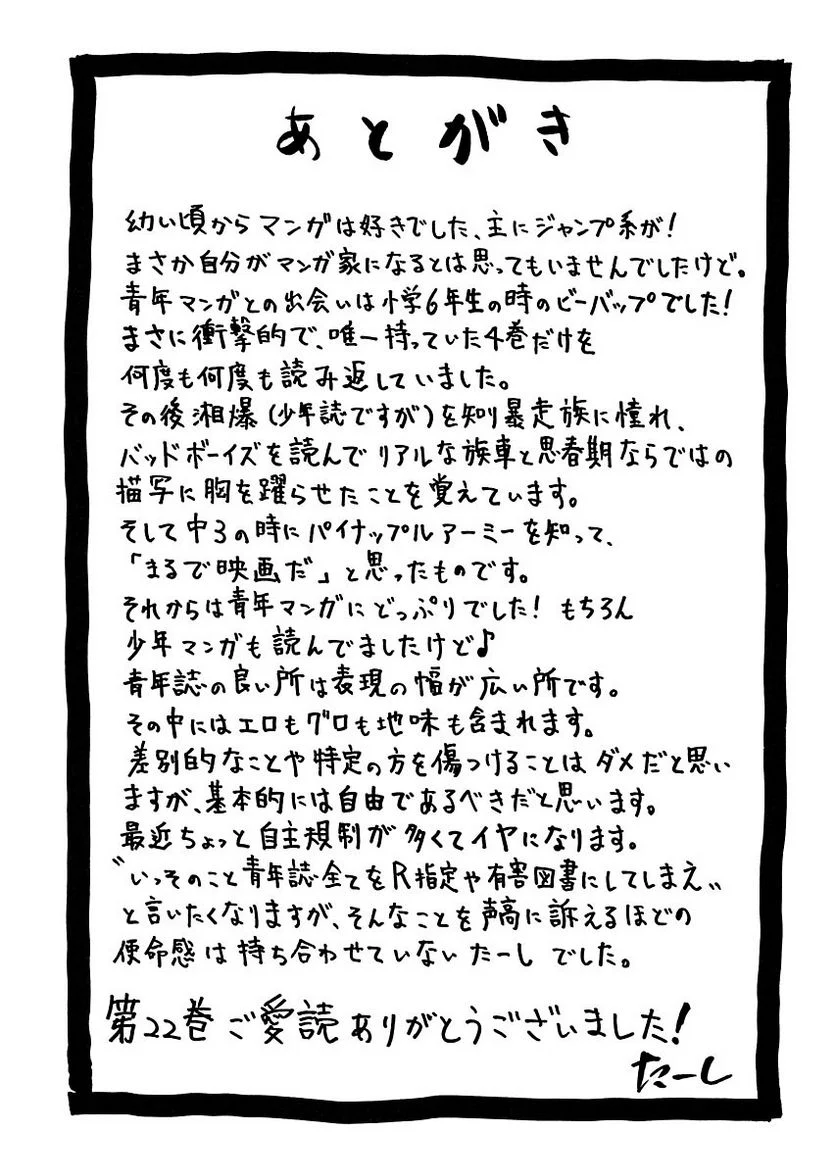 あとがき
幼い頃からマンガは好きでした、主にジャンプ系が!
まさか自分がマンガ家になるとは思ってもいませんでしたけど。
青年マンガとの出会いは小学6年生の時のビーバップでした!
まさに衝撃的で、唯一持っていた4巻だけを
何度も何度も読み返していました。
その後湘爆(少年誌ですが)を知り暴走族に憧れ、
バッドボーイズを読んでリアルな族車と思春期ならではの
描写に胸を躍らせたことを覚えています。
そして中3の時にパイナップルアーミーを知って、
「まるで映画だ」と思ったものです。
それからは青年マンガにどっぷりでした! もちろん
少年マンガも読んでましたけど♪
青年誌の良い所は表現の幅が広い所です。
その中にはエロもグロも地味も含まれます。
差別的なことや特定の方を傷つけることはダメだと思い
ますが、基本的には自由であるべきだと思います。
最近ちょっと自主規制が多くてイヤになります。
〝いっそのこと青年誌全てをR指定や有害図書にしてしまえ〟
と言いたくなりますが、そんなことを声高に訴えるほどの
使命感は持ち合わせていないたーしでした。
第22巻ご愛読ありがとうございました!
たーし